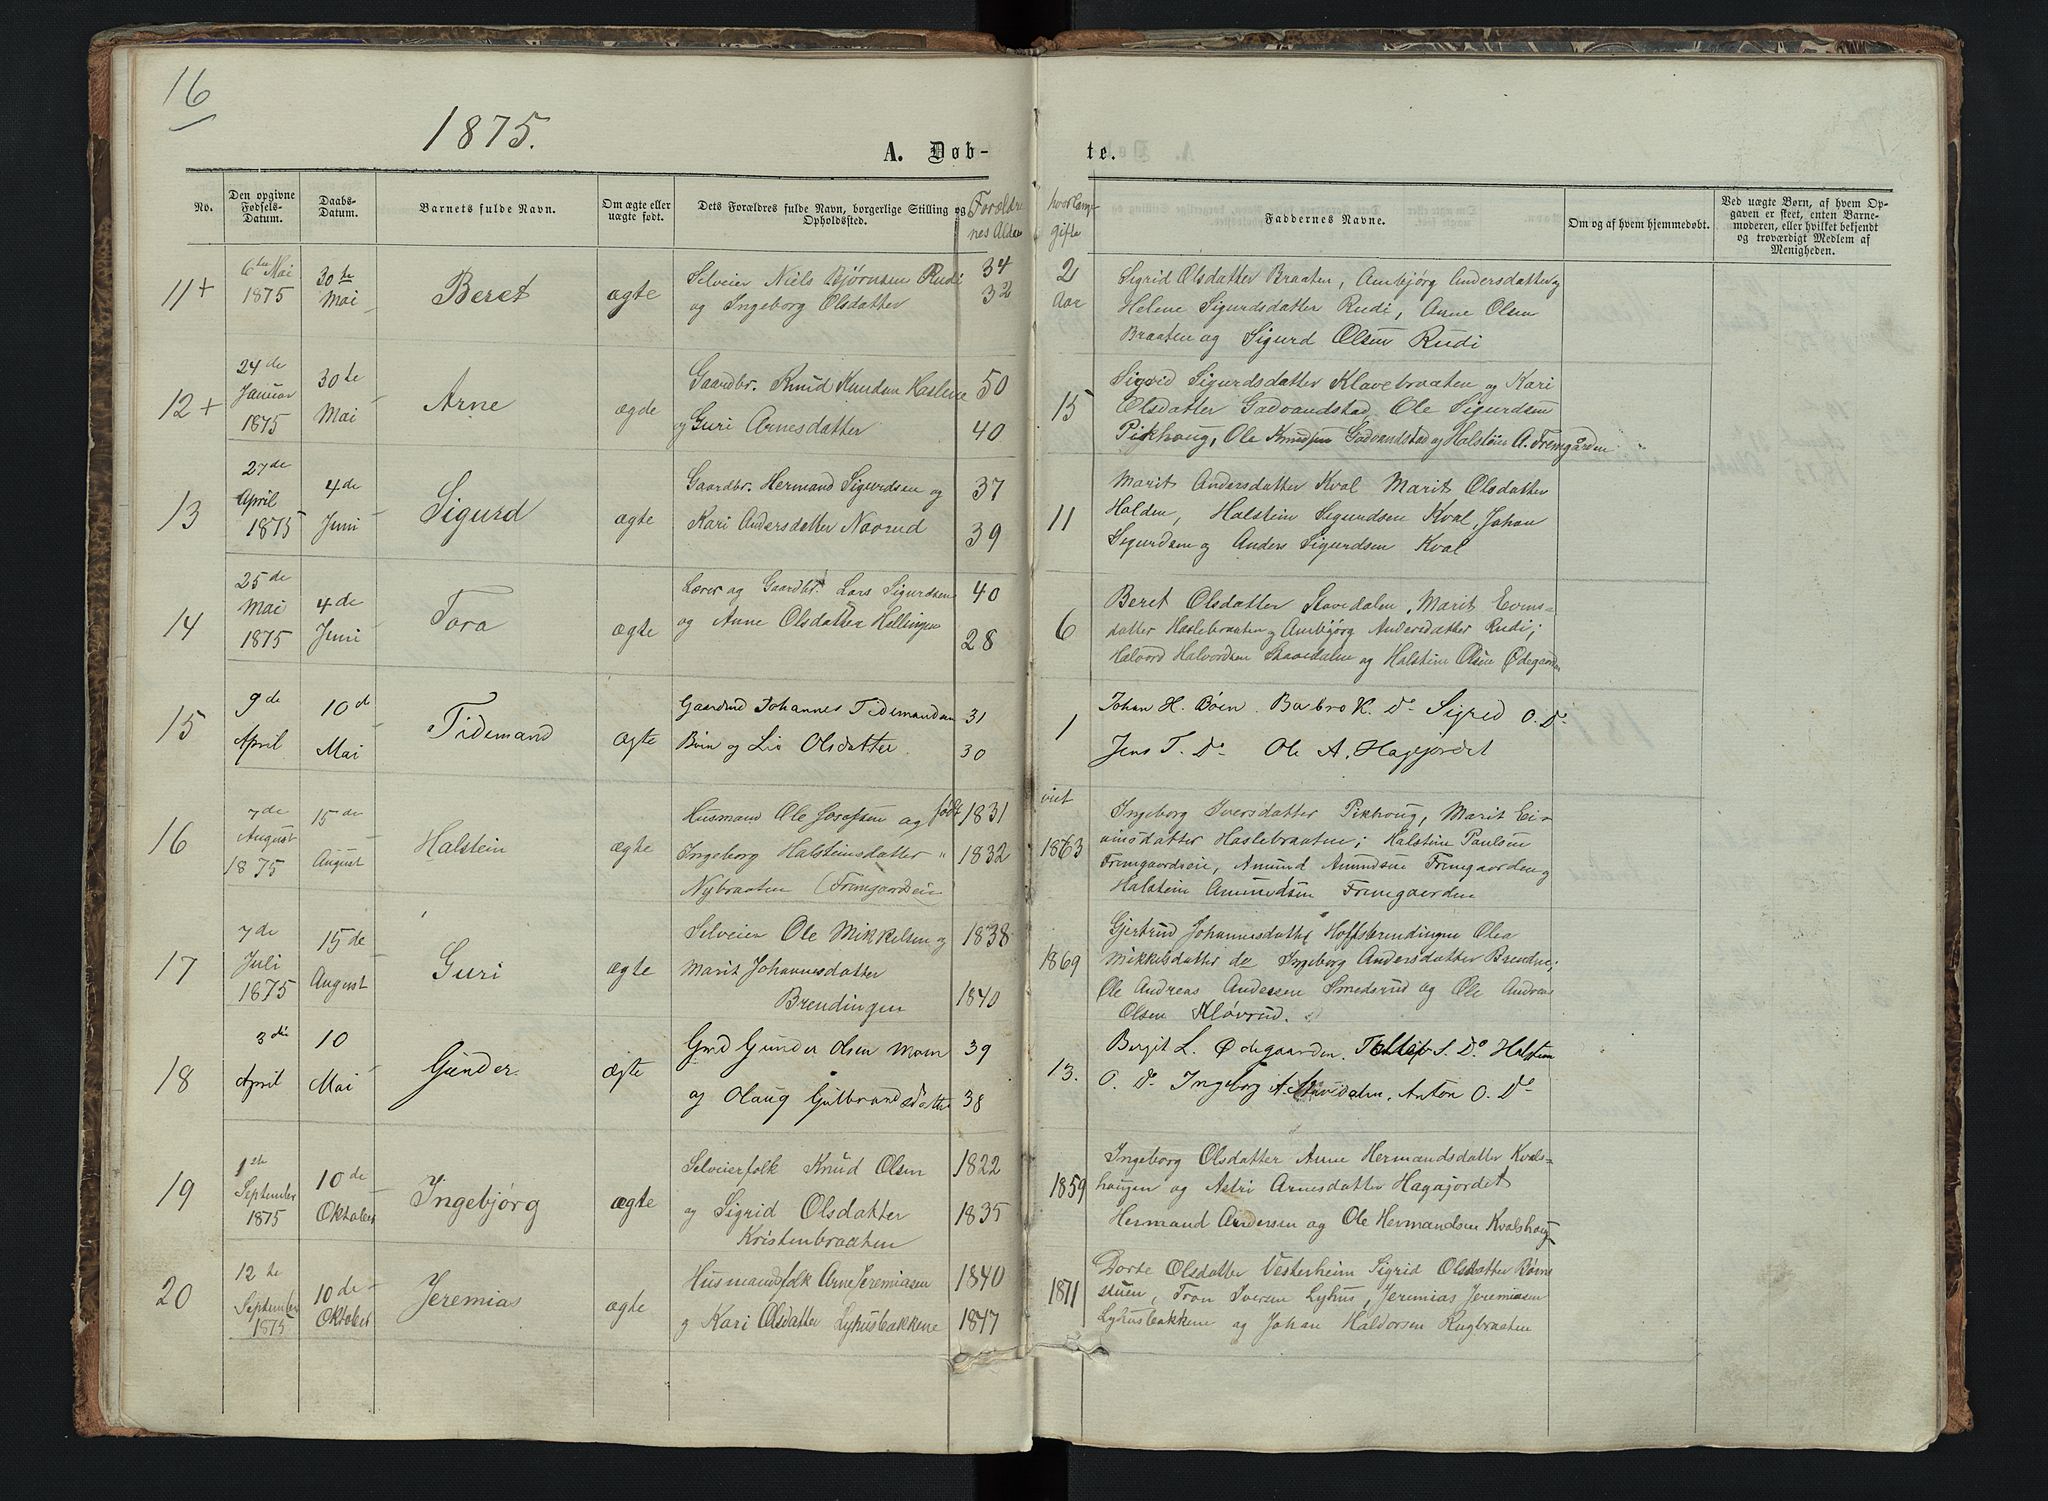 16
1875.
A. Døb-
te.
No.
Den opgivne Fødsels-Datum.
Daabs-Datum.
Barnets fulde Navn.
Om ægte eller uægte født.
Dets Forældres fulde Navn, borgerlige Stilling og Opholdssted.
Forældrenes Alder
hvorlænge gifte
Faddernes Navne.
Om og af hvem hjemmedøbt.
Ved uægte Børn, af hvem Opgaven er skeet, enten Barnemoderen, eller hvilket bekjendt og troværdigt Medlem af Menigheden.
11+
6te Mai
1875
30te
Mai
Beret
ægte
Selveier Niels Bjørnsen Rudi
og Ingeborg Olsdatter
34
32
2
Aar
Sigrid Olsdatter Braaten, Ambjørg Andersdatter og
Helene Sigurdsdatter Rudi, Arne Olsen
Braaten og Sigurd Olsen Rudi
12+
24de
Januar
1875
30te
Mai
Arne
ægde
Gaardbr. Knud Knudsen Haslene
og Guri Arnesdatter
50
40
15
Sigrid Sigurdsdatter Klavebraaten og Kari
Olsdatter Gadvandstad, Ole Sigurdsen
Pikhoug, Ole Knudsen Gadvandstad og Halstein A. Fremgården
13
27de
April
1875
4de
Juni
Sigurd
ægte
Gaardbr. Hermand Sigurdsen og
Kari Andersdatter Navrud
37
39
11
Marit Andersdatter Kval Marit Olsdatter
Halden, Halstein Sigurdsen Kval, Johan
Sigurdsen og Anders Sigurdsen Kval
14
25de
Mai
1875
4de
Juni
Tora
ægte
Lærer og Gaardbr. Lars Sigurdsen
og Anne Olsdatter Hellingen
40
28
6
Beret Olsdatter Stavedalen, Marit Evens-
datter Haslebraaten og Ambjørg Andersdatter Rudi;
Halvord Halvordsen Stavedalen og Halstein Olsen Ødegarden
15
9de
April
10de
Mai
Tidemand
ægte
Gaardmd Johannes Tidemandsen
Bøen og Liv Olsdatter
31
30
1
Johan H. Bøen. Barbro K. Do Sigrid O. Do
Jens T. Do Ole A. Hagajordet
16
7de
August
1875
15de
August
Halstein
ægte
Husmand Ole Joransen og født
Ingeborg Halsteinsdatter "
Nybraaten (Fremgaardseie
1831
1832
viet
1863
Ingeborg Iversdatter Pikhoug, Marit Ei-
vinsdatter Haslebraaten; Halstein Paulsen
Fremgaardseie, Amund Amundsen Fremgaarden og
Halstein Amundsen Fremgaarden
17
7de
Juli
1875
15de
August
Guri
ægte
Selveier Ole Mikkelsen og
Marit Johannesdatter
Brendingen
1838
1840
1869
Gjertrud Johannesdatter Hoffsbrendingen Olea
Mikkelsdatter do Ingeborg Andersdatter Brendne;
Ole Andreas Andersen Smedsrud og Ole Andreas
Olsen Kløvrud.
18
3die
April
10
Mai
Gunder
ægte
Gmd Gunder Olsen Moen
og Olaug Gulbrandsdatter
39
38
13.
Bergit L. Ødegaarden. Tollef S. Do Halstein
O. Do Ingeborg A. Stavedalen. Anton O. Do
19
1ste
September
1875
10de
Oktober
Ingebjørg
ægte
Selveierfolk Knud Olsen
og Sigrid Olsdatter
Kristenbraaten
1822
1835
1859
Ingeborg Olsdatter Anne Hermandsdatter Kvals-
haugen og Astri Arnesdatter Hagajordet
Hermand Andersen og Ole Hermandsen Kvalshoug
20
12te
September
1875
10de
Oktober
Jeremias
ægte
Husmandsfolk Arne Jeremiasen
og Kari Olsdatter Lyhusbakkene
1840
1847
1871
Dorte Olsdatter Vesterheim Sigrid Olsdatter Bøens
stuen, Tron Iversen Lyhus, Jeremias Jeremiasen
Lyhusbakkene og Johan Haldorsen Rugbraaten